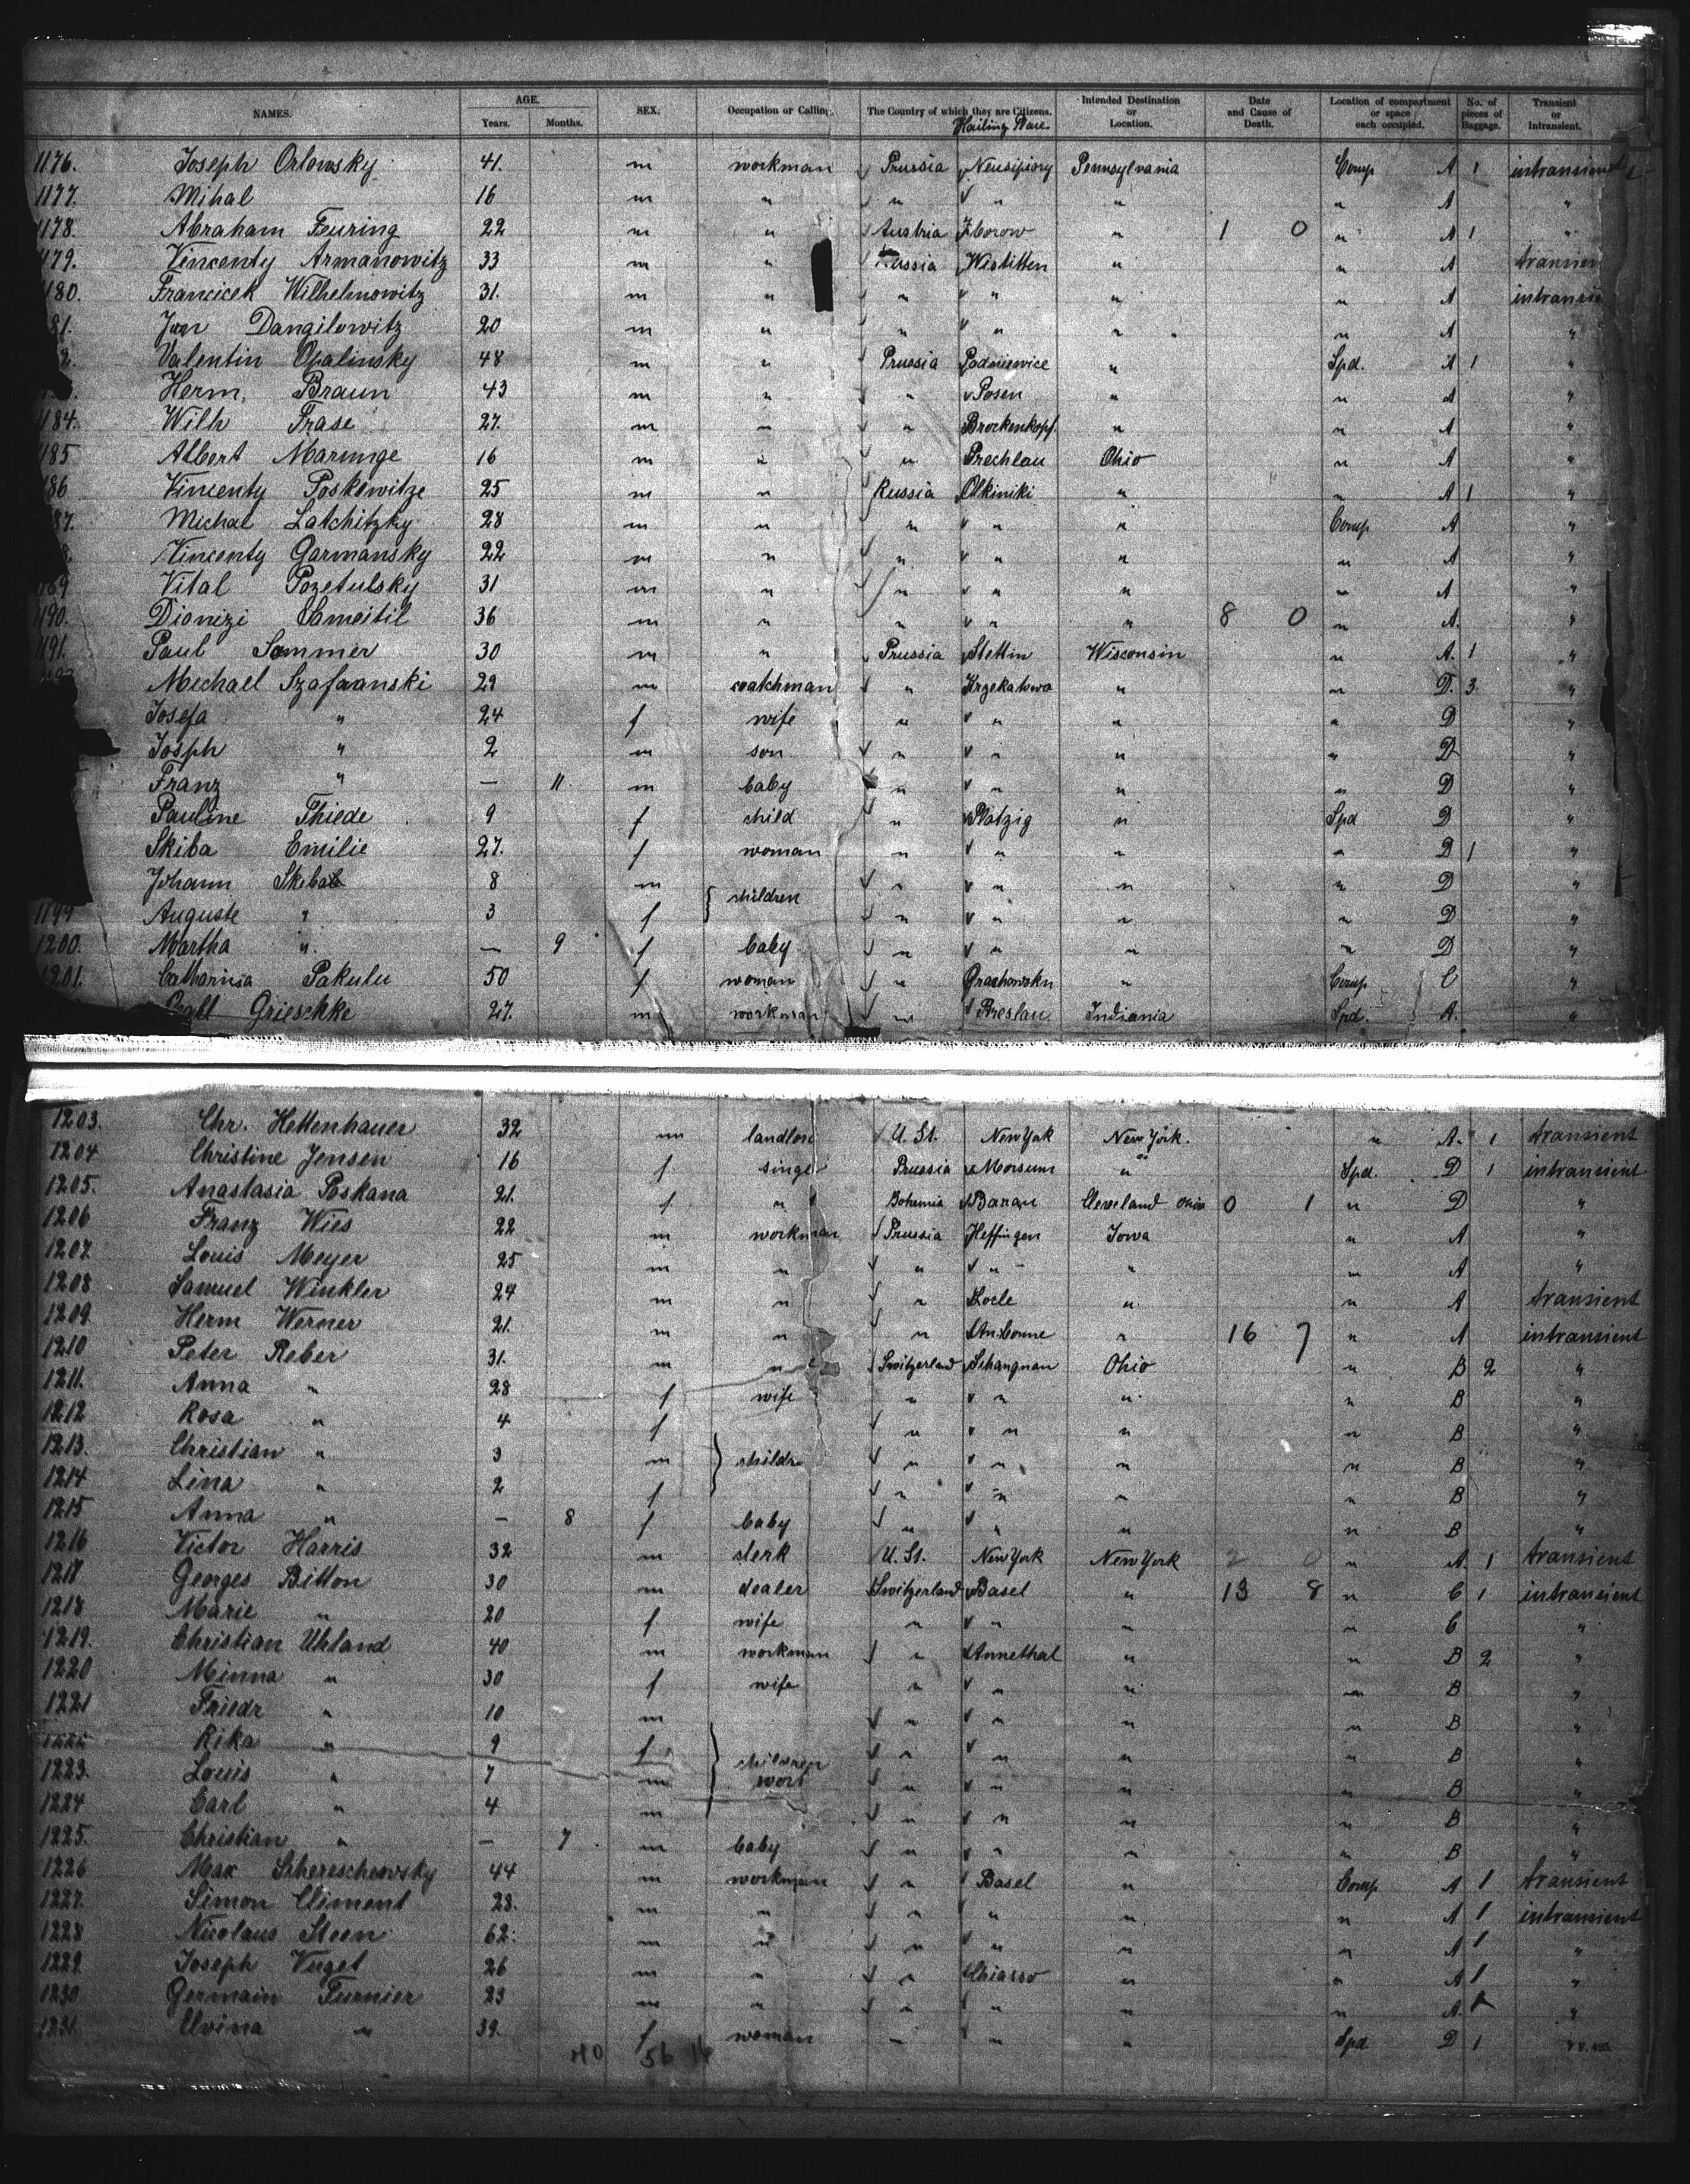 NAMES. AGE. Years. Months. SEX. Occupation or Calling. The Country of which they are Citizens. Hailing Place Intended Destination or Location. Date and Cause of Death. Location of compartment or space each occupied. No. of pieces of Baggage. Transient or Intransient.
1176. Joseph Orlowsky 41. m workman Prussia Pennsylvania Comp A 1 intransient
1177. Mihal 16 m " " " " " A "
1178. Abraham Feuring 22 m " Austria Zborow " 1 0 " A 1 "
1179. Vincenty Armanowitz 33 m " Russia Wistitten " " A transien
1180. Francicek Wilhelmowitz 31. m " " " " " A intransie
81. Jvan Dangilowitz 20 m " " " " " A "
2. Valentin Opalinsky 48 m " Prussia " Spd. A 1 "
Herm. Braun 43 m " " Posen " " A "
1184. Wilh Frase 27. m " " Brockenkopf. " " A "
185 Albert Marunge 16 m " " Prechlau Ohio " A "
186 Vincenty Poskowitze 25 m " Russia Olkiniki " " A 1 "
87. Michal Latchitzky 28 m " " " " Comp A "
8. Vincenty Garmansky 22 m " " " " " A "
1189 Vital Pozetulsky 31 m " " " " " A "
1190. Dionizi Sameitil 36 m " " " " 8 0 " A. "
1191. Paul Sommer 30 m " Prussia Stettin Wisconsin " A. 1 "
Michael Szafranski 29 m coatchman " Krzekatowo " " D. 3 "
Josefa " 24 f wife " " " " D "
Josph " 2 m son " " " " D "
Franz " — 11. m baby " " " " D "
Pauline Thiede 9 f child " Platzig " Spd D "
Skiba Emilie 27. f woman " " " " D 1 "
Johann Skiba 8 m } children " " " " D "
1199 Auguste " 3 f " " " " D "
1200. Martha " — 9 f baby " " " " D "
1201. Catharina Pakulu 50 f woman " " Comp C "
Grieschke 27. m workman " Breslau Indiania Spd. A. "
1203. Chr. Hettenhauer 32 m landlor U. St. NewYok New York. " A. 1 transient
1204 Christine Jensen 16 f. single Prussia Morsum " Spd. D 1 intransient
1205. Anastasia Poskana 21. f. " Bohemia Cleveland Ohio 0 1 " D "
1206 Franz Wies 22 m workman Prussia Heffingen Iowa " A "
1207. Louis Meyer 25 m " " " " " A "
1208 Samuel Winkler 24 m " " Locle " " A transient
1209. Herm Werner 21. m " " " 16 7 " A intransient
1210 Peter Reber 31. m " Switzerland Schangnau Ohio " B 2 "
1211. Anna " 28 f wife " " " " B "
1212 Rosa " 4 f " " " " B "
1213. Christian " 3 m } childr " " " " B "
1214 Lina " 2 f " " " " B "
1215 Anna " — 8 f baby " " " " B "
1216 Victor Harris 32 m clerk U. St. NewYork NewYork 2 0 " A. 1 transient
1217 Georges Bitton 30 m dealer Switzerland Basel " 13 8 " C 1 intransient
1218 Marie " 20 f wife " " " " C "
1219. Christian Uhland 40 m workman " Annethal " " B 2 "
1220 Minna " 30 f wife " " " " B "
1221 Friedr " 10 m " " " " B "
1222 Rika " 9 f " " " " B "
1223. Louis " 7 m } children " " " " B "
1224 Carl " 4 m " " " " B "
1225. Christian " — 7 m baby " " " " B "
1226 Max Schereschewsky 44 m workman " Basel " Comp A 1 transient
1227. Simon Climent 28. m " " " " " A 1 intransient
1228 Nicolaus Steen 62. m " " " " " A 1 "
1229. Joseph Vuget 26 m " " Chiasso " " A 1 "
1230 Germain Furnier 23 m " " " " " A. 1 "
1231. Elvina " 39. f woman " " " Spd. D 1 "
40 56